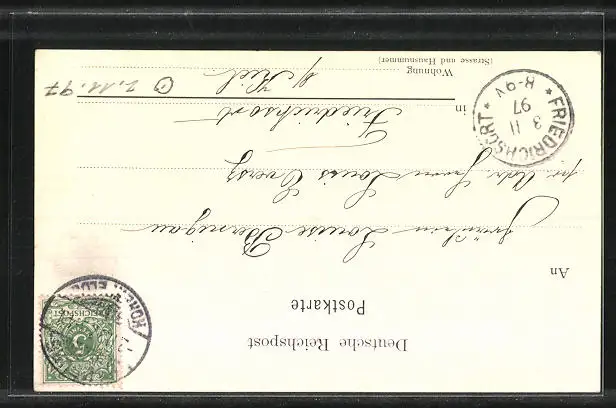 Deutsche Reichspost
Postkarte
An
Fräulein Louise Bernigau
pr. Adr. Frau Louis Evers
in Friedrichsort
b/ Kiel
Wohnung
(Strasse und Hausnummer)
2.11.97
FRIEDRICHSORT
3 11
97
8-9V
REICHSPOST
5